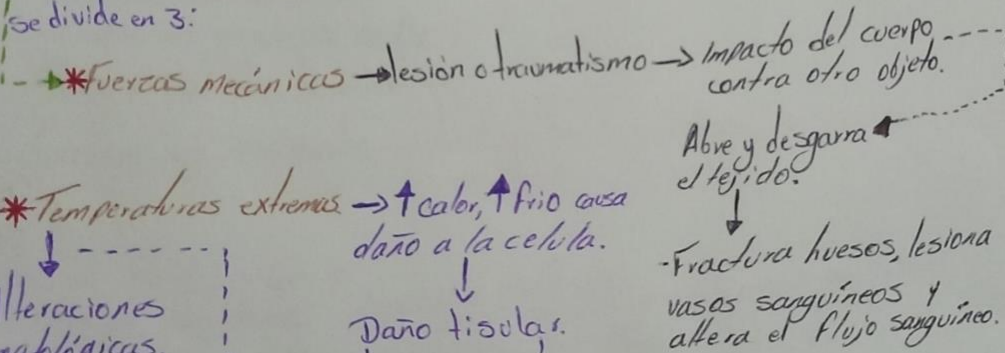 se divide en 3:
*Fuerzas mecánicas → lesión o traumatismo → Impacto del cuerpo
contra otro objeto.
Abre y desgarra
el tejido.
↓
-Fractura huesos, lesiona
vasos sanguíneos y
altera el flujo sanguíneo.
*Temperaturas extremas → ↑calor, ↑frio causa
daño a la celula.
↓
Daño tisular.
↓
Alteraciones